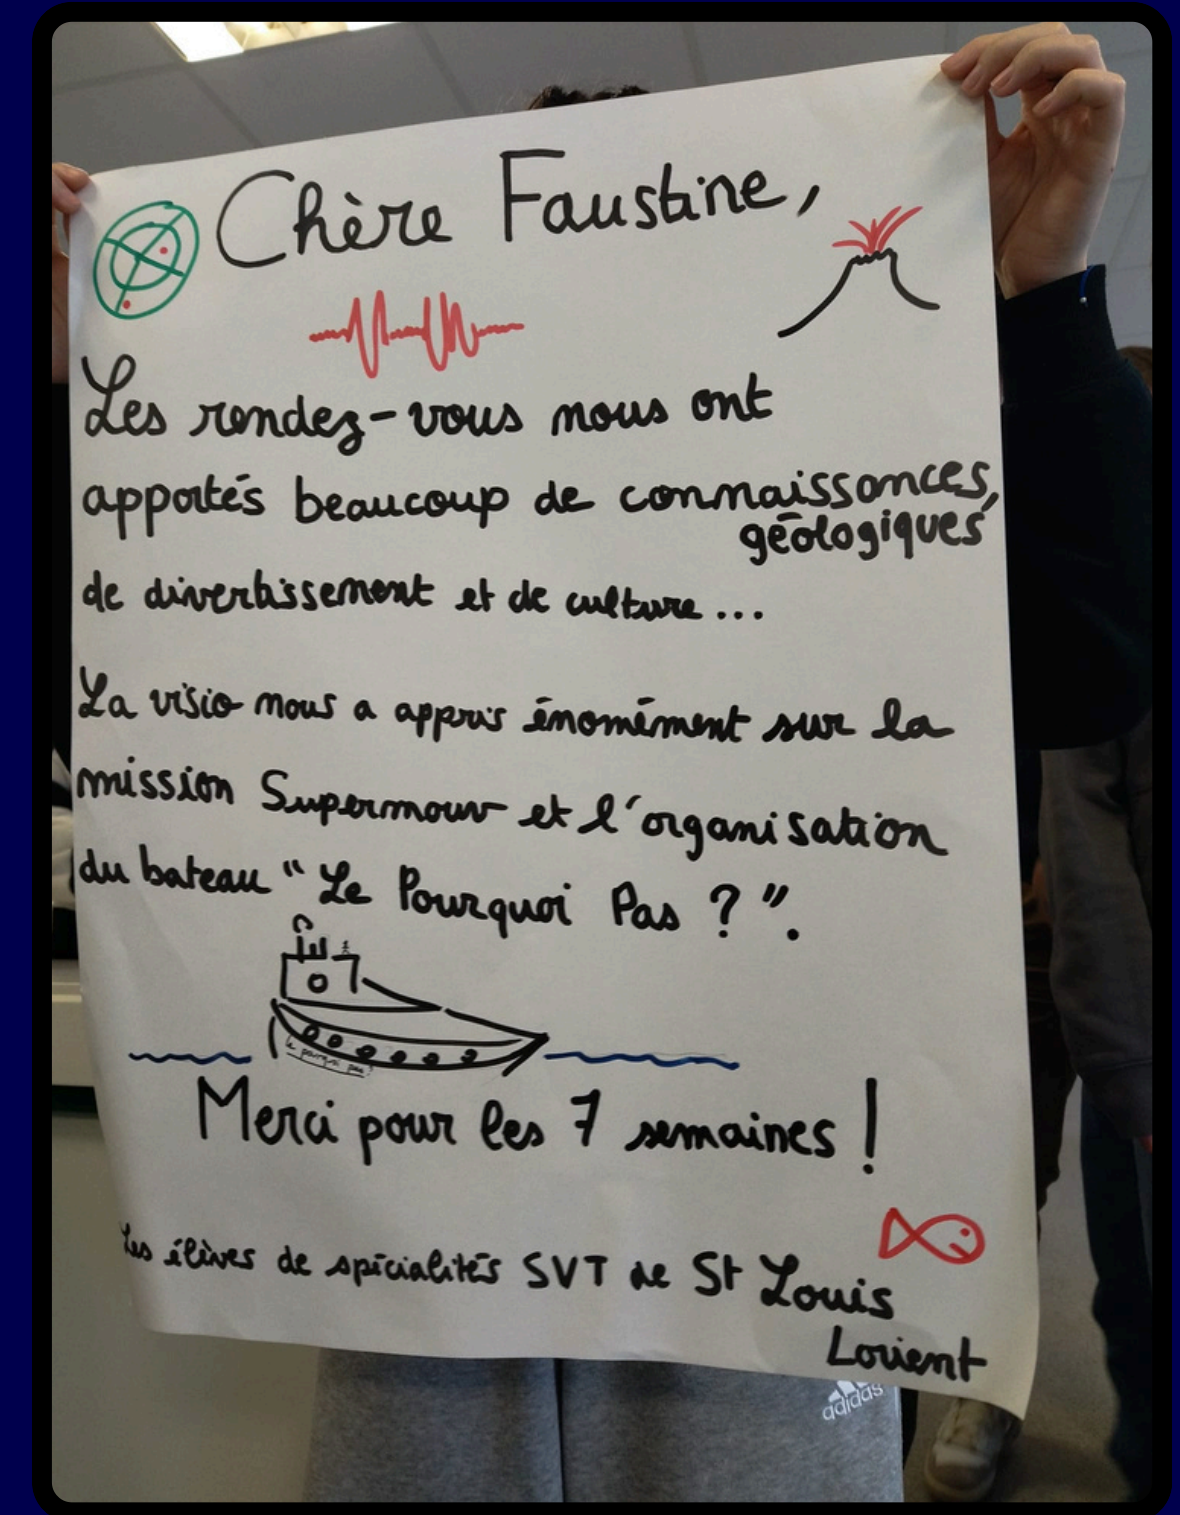 Chère Faustine,
Les rendez-vous nous ont
apportés beaucoup de connaissances,
géologiques
de divertissement et de culture...
La visio nous a appris énormément sur la
mission Supermouv et l'organisation
du bateau "Le Pourquoi Pas ?".
le pourquoi pas?
Merci pour les 7 semaines !
Les élèves de spécialités SVT de St Louis
Lorient
adidas